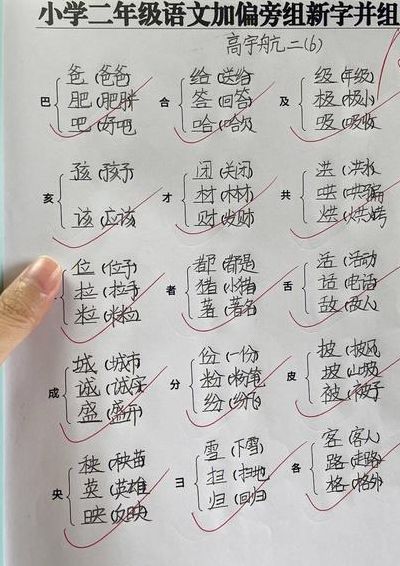 小学二年级语文加偏旁组新字并组
高宇航 二(6)
爸(爸爸) 给(送给) 级(年级)
巴 肥(肥胖) 合 答(回答) 及 极(极小)
吧(好吧) 哈(哈欠) 吸(吸收)
孩(孩子) 闭(关闭) 洪(洪水)
亥 才 材(木材) 共 哄(哄骗)
该(应该) 财(发财) 烘(烘烤)
位(位子) 都(都是) 活(活动)
拉(拉手) 者 猪(小猪) 舌 话(电话)
粒(米粒) 著(著名) 敌(敌人)
城(城市) 份(一份) 披(披风)
成 诚(诚实) 分 粉(粉笔) 皮 坡(山坡)
盛(盛开) 纷 被(被子)
秧(秧苗) 雪(下雪) 客(客人)
央 英(英雄) 彐 扫(扫地) 各 路(走路)
映(反映) 归(回归) 格(格外)